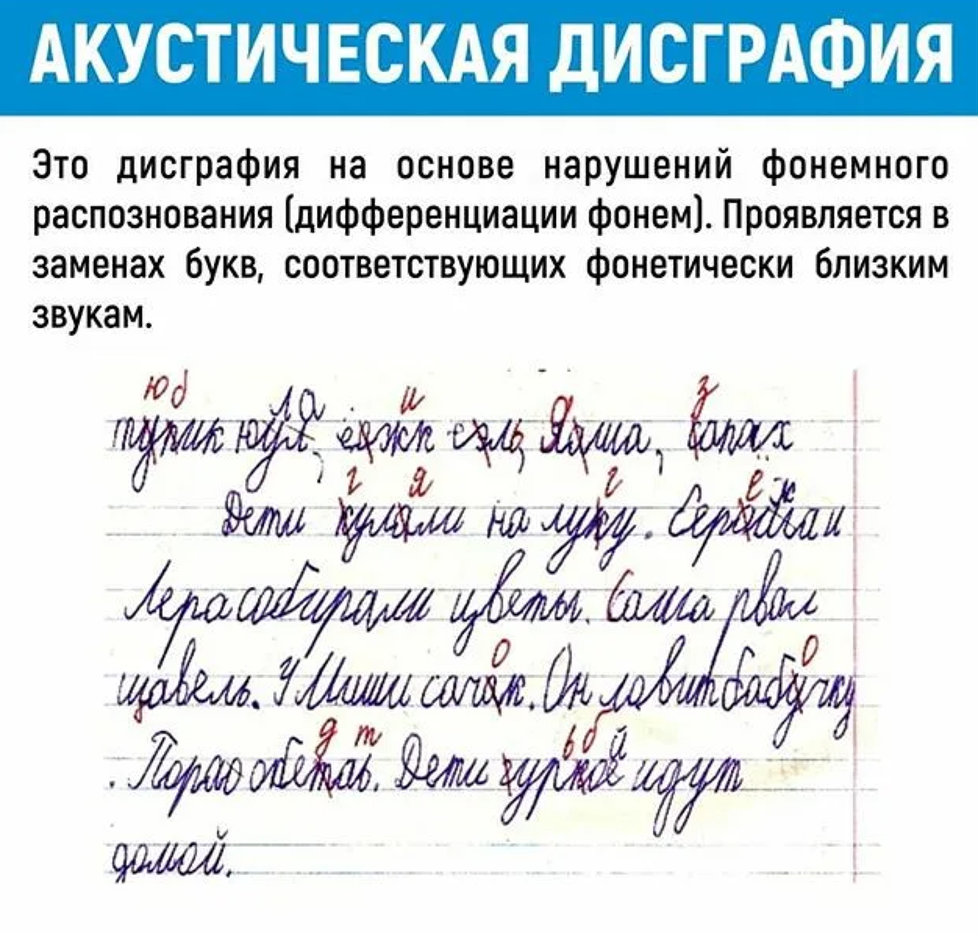 АКУСТИЧЕСКАЯ ДИСГРАФИЯ
Это дисграфия на основе нарушений фонемного
распознования (дифференциации фонем). Проявляется в
заменах букв, соответствующих фонетически близким
звукам.
ю б ла и з
тупик юул, ель Яша, сапах
г я г ё ж
Дети кулали на луку. и
Лера собирали цветы. Саша рвал
о о
щавель. У Миши сачак. Он ловит бабучку
д т ь б й
. Пора обетаь. Дети идут
домой.